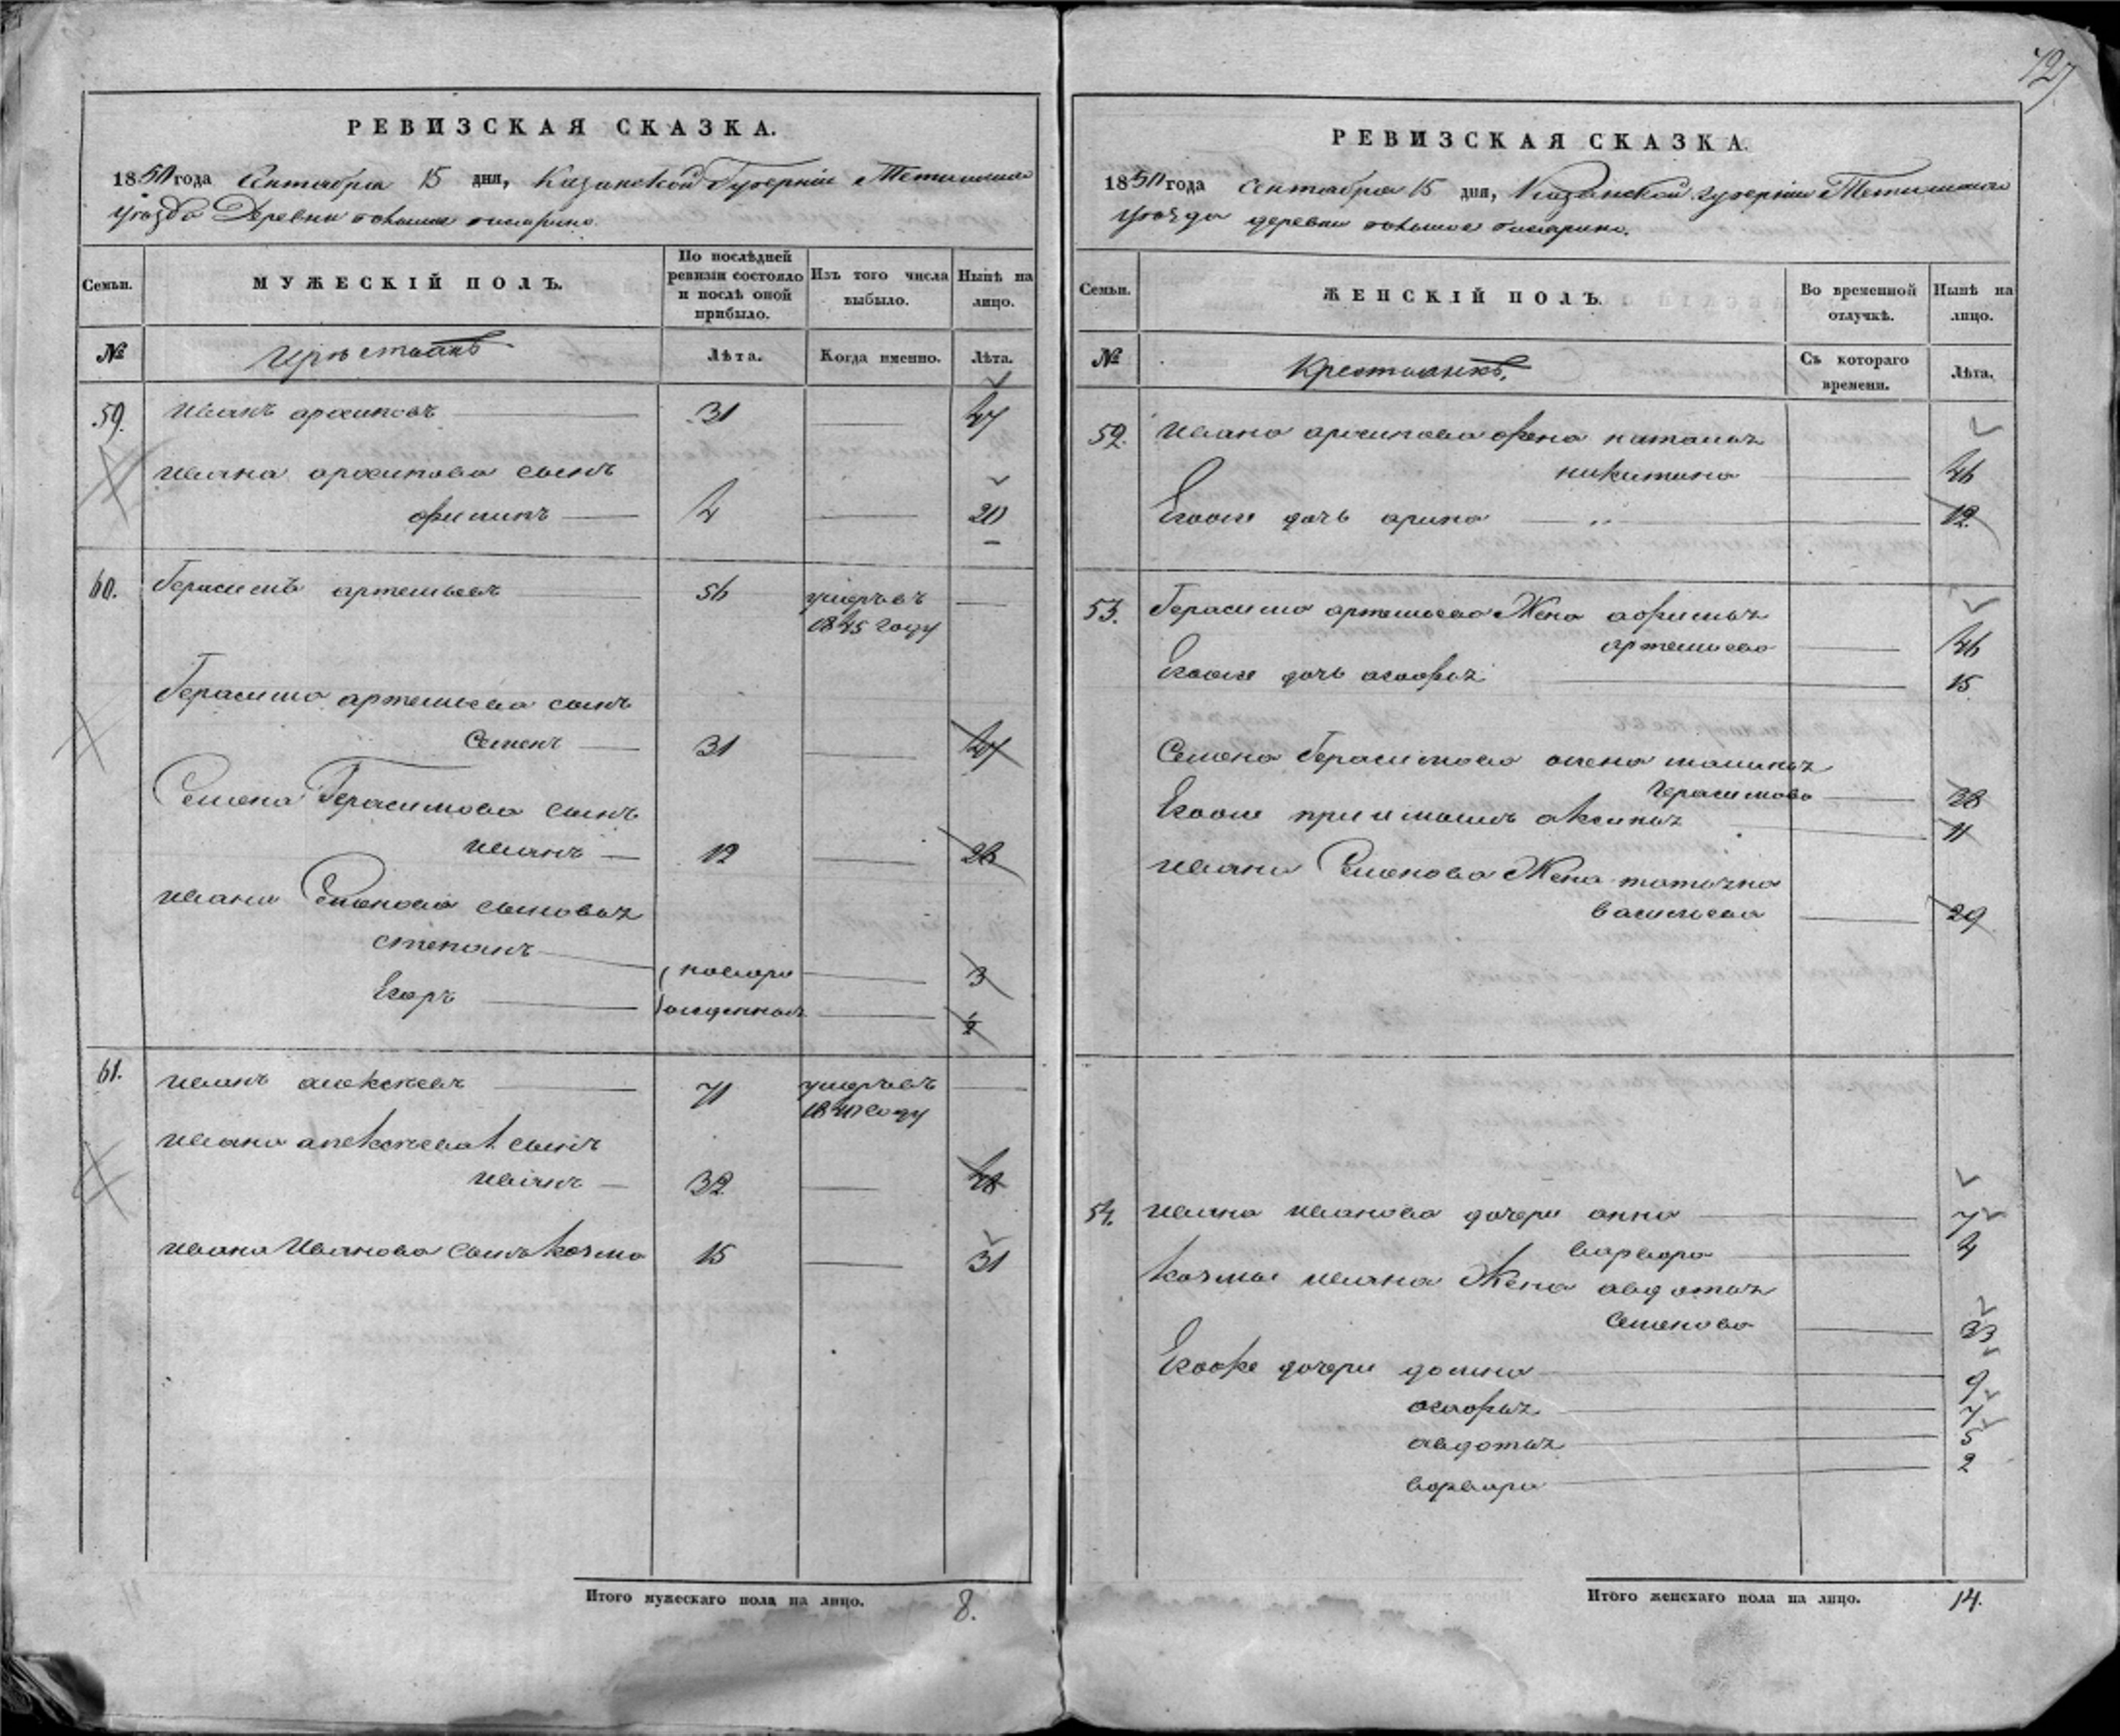 427
РЕВИЗСКАЯ СКАЗКА.
1850 года Сентября 15 дня, Казанской Губерніи Тетюшскаго
Уѣзда Деревни большое
Семьи.
МУЖЕСКІЙ ПОЛЪ.
По послѣдней ревизіи состояло и послѣ оной прибыло.
Изъ того числа выбыло.
Нынѣ на лицо.
№
Лѣта.
Когда именно.
Лѣта.
59. иванъ архиповъ 31 47
ивана архипова сынъ
филипъ 4 20
60. Герасимъ артемьевъ 56 умръвъ
1845 году
Герасима артемьева сынъ
Семенъ 31 47
Семена Герасимова сынъ
иванъ 12 28
ивана Семенова сыновья
степанъ 3
Егоръ 2
61. иванъ алексѣевъ 71 умръвъ
1840 году
ивана алексѣева 1 сынъ
иванъ 32 48
ивана Иванова сынъ козма 15 31
Итого мужескаго пола на лицо. 8.
РЕВИЗСКАЯ СКАЗКА.
1850 года Сентября 15 дня, Казанской губерніи Тетюшскаго
уѣзда деревни большое
Семьи.
ЖЕНСКІЙ ПОЛЪ.
Во временной отлучкѣ.
Нынѣ на лицо.
№
Крестьянкъ.
Съ котораго времени.
Лѣта.
52. ивана архипова жена наталья
никитина 46
Егоже дочь арина 12
53. Герасима артемьева Жена афимья
артемьева 46
Егоже дочь 15
Семена Герасимова жена
Герасимова 38
Егоже аксинья 11
ивана Семенова Жена татьяна
васильева 29
54. ивана иванова дочери анна 7
варвара 4
козмы ивана Жена авдотья
Семенова 33
Егоже дочери домна 9
7
авдотья 5
варвара 2
Итого женскаго пола на лицо. 14.